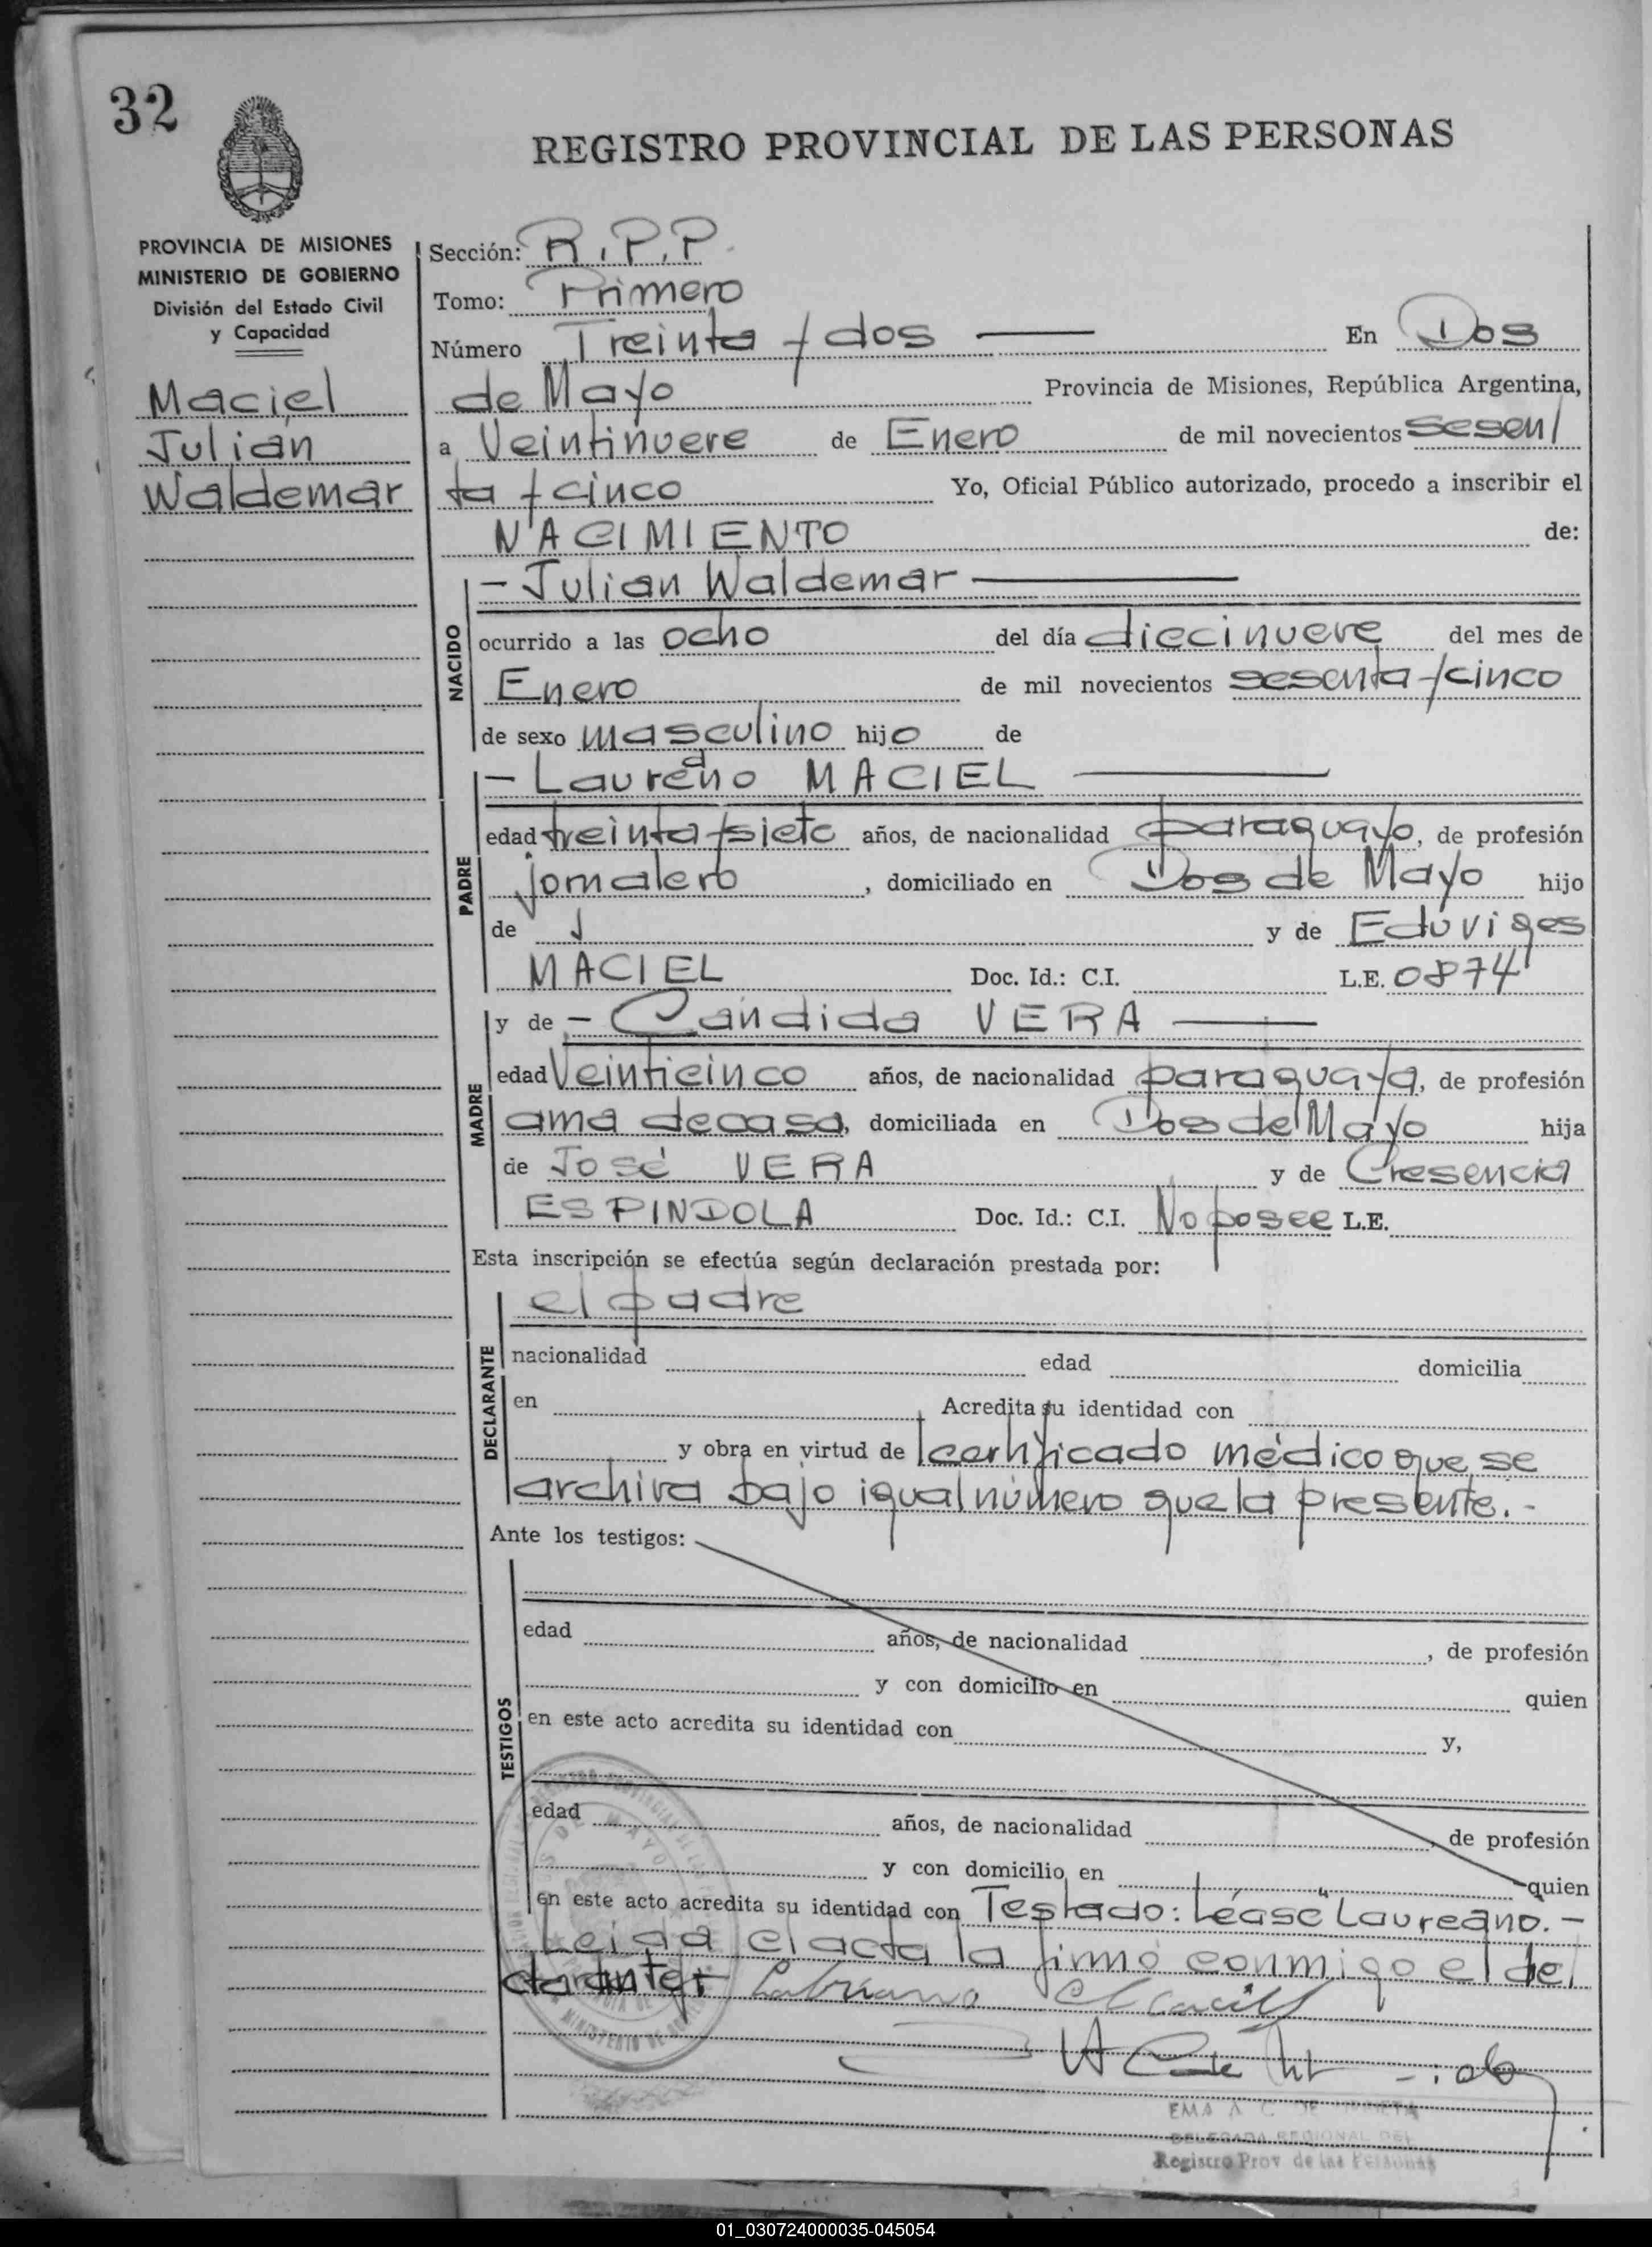 32
REGISTRO PROVINCIAL DE LAS PERSONAS
PROVINCIA DE MISIONES
MINISTERIO DE GOBIERNO
División del Estado Civil
y Capacidad
Maciel
Julián
Waldemar
Sección: R.P.P.
Tomo: Primero
Número Treinta y dos En Dos
de Mayo Provincia de Misiones, República Argentina,
a Veintinueve de Enero de mil novecientos sesen/
ta y cinco Yo, Oficial Público autorizado, procedo a inscribir el
NACIMIENTO de:
NACIDO
- Julian Waldemar
ocurrido a las ocho del día diecinueve del mes de
Enero de mil novecientos sesenta y cinco
de sexo masculino hijo de
PADRE
- Laureano MACIEL
edad treinta y siete años, de nacionalidad paraguayo, de profesión
jornalero, domiciliado en Dos de Mayo hijo
de y de Eduviges
MACIEL Doc. Id.: C.I. L.E. 0874
MADRE
y de - Cándida VERA
edad Veinticinco años, de nacionalidad paraguaya, de profesión
ama de casa, domiciliada en Dos de Mayo hija
de José VERA y de Cresencia
ESPINDOLA Doc. Id.: C.I. No posee L.E.
Esta inscripción se efectúa según declaración prestada por:
DECLARANTE
el padre
nacionalidad edad domicilia
en Acredita su identidad con
y obra en virtud de certificado médico que se
archiva bajo igual número que la presente.-
Ante los testigos:
TESTIGOS
edad años, de nacionalidad , de profesión
y con domicilio en quien
en este acto acredita su identidad con y,
edad años, de nacionalidad , de profesión
y con domicilio en quien
en este acto acredita su identidad con Testado: Léase "Laureano.-
Leida el acta la firmó conmigo el de/
clarante
DOS DE MAYO
MINISTERIO DE
DELEGADA REGIONAL DEL
Registro Prov de las Personas
01_030724000035-045054